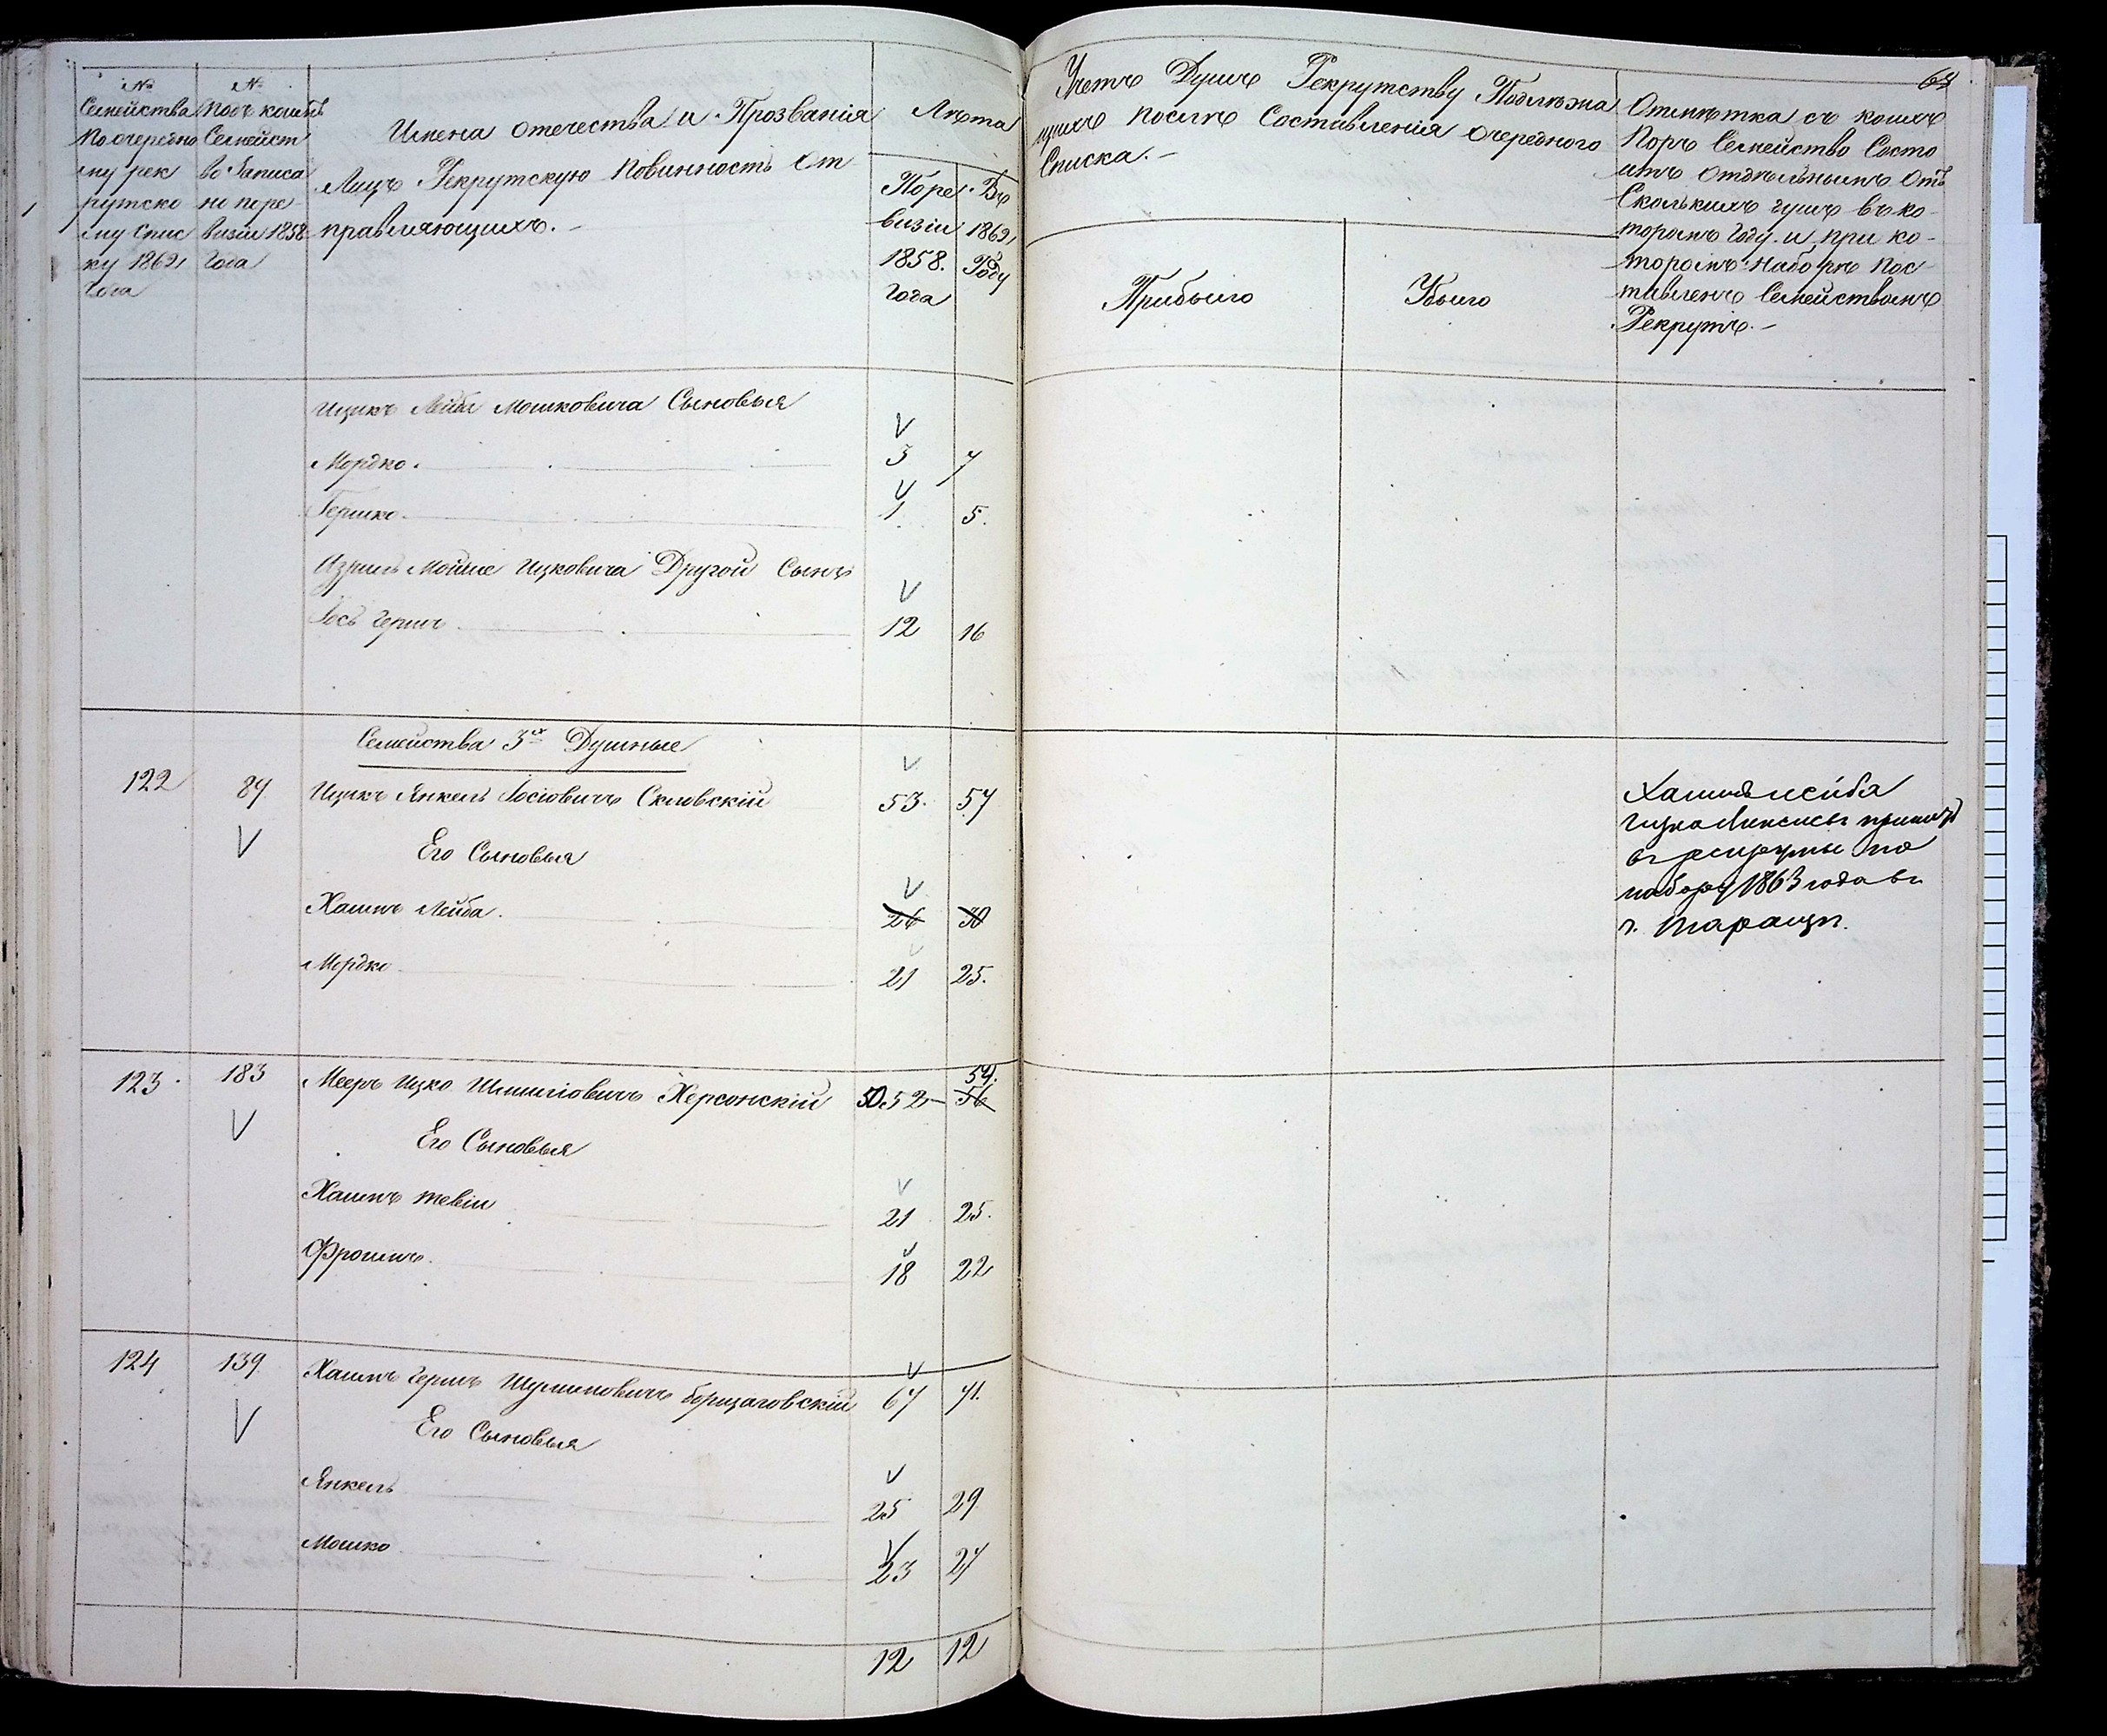 №
Семейства
по очередно
му рек
рутско
му спис
ку 1862
года
№
Подъ коимъ
Семейст
во записа
но по ре
визіи 1858
года
Имена отечества и Прозванія
Лицъ Рекрутскую повинность от
правляющихъ.
Лѣта
По ре
визіи
1858.
года
Въ
1862
Году
Учетъ Душъ Рекрутству Подлежа
щихъ послѣ Составленія очереднаго
Списка.
Прибыло
Убыло
64
Отмѣтка съ коихъ
поръ Семейство Состо
итъ отдѣльнымъ отъ
Сколькихъ душъ въ ко
торомъ году и при ко
торомъ наборѣ пос
тавленъ Семействомъ
Рекрутъ.
Ицикъ Лейба Мошковича Сыновья
Мордко. 3 7
Гершко. 1 5.
Азриль Мойше Ицковича Другой Сынъ
Іось Гершъ 12 16
Семейства 3х Душные
122 89 Ицикъ Янкель Іосіовичъ Скловскій 53. 57
Его Сыновья
Хаимъ Лейба. 26 30
Мордко 21 25.
Хаимъ Лейба
принятъ
въ рекруты по
набору 1863 года въ
г. Таращѣ.
123. 183 Мееръ Ицко Шмиліовичъ Херсонскій 50. 52 54. 56
Его Сыновья
Хаимъ Тевіи 21 25.
Фроимъ. 18 22
124 139 Хаимъ Гершъ Шулимовичъ Борщаговскій 67 71.
Его Сыновья
Янкель 25 29
Мошко 23 27
12 12